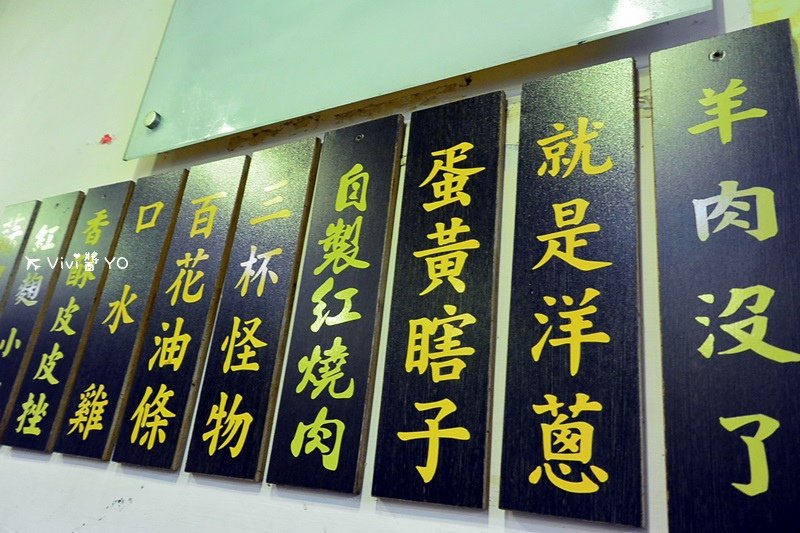 羊肉沒了
就是洋蔥
蛋黃瞎子
自製紅燒肉
三杯怪物
百花油條
口水雞
香酥皮皮挫
紅麴
小
Vivi醬YO